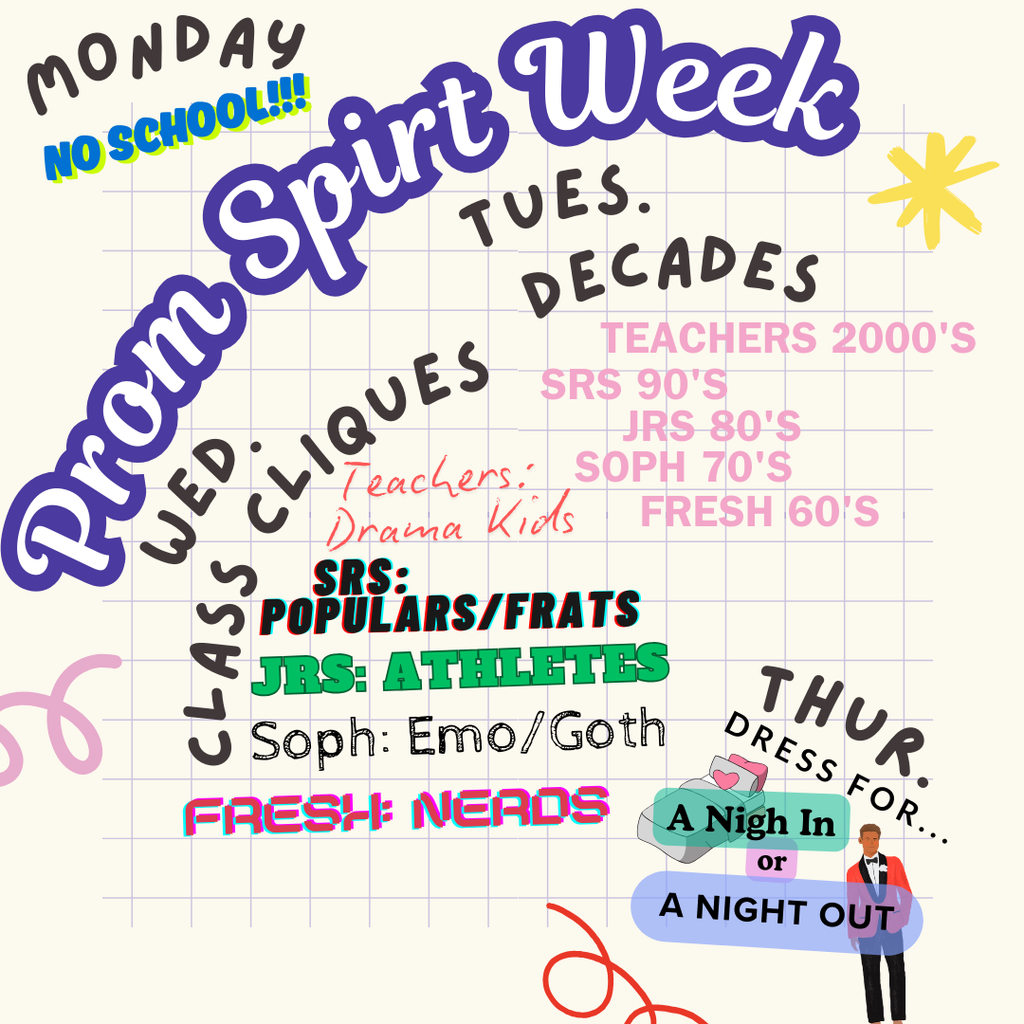 MONDAY
NO SCHOOL!!!
Prom Spirt Week
TUES.
DECADES
TEACHERS 2000'S
SRS 90'S
JRS 80'S
SOPH 70'S
FRESH 60'S
WED.
CLASS CLIQUES
Teachers:
Drama Kids
SRS:
POPULARS/FRATS
JRS: ATHLETES
Soph: Emo/Goth
FRESH: NERDS
THUR.
DRESS FOR...
A Nigh In
or
A NIGHT OUT